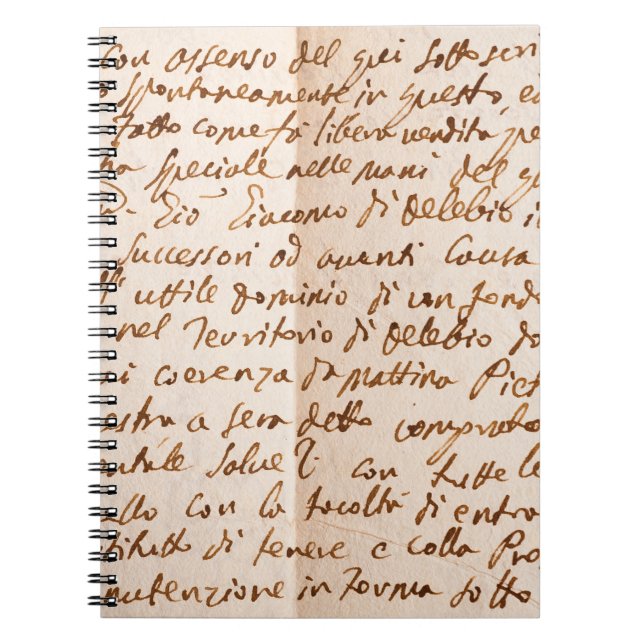 con assenso del qui sottoscri
o spontaneamente in questo, ed
fatto come fà libera vendita, pe
na speciale nelle mani del q
D. Giõ Giacomo di Delebio i
Successori ad aventi Causa
l'uttile dominio di un fond
nel Territorio di Delebio do
i coerenza da mattina Piet
estra a sera detto comprato
salve con tutte le
llo con la facoltà di entra
di tenere e colla Pro
nutenzione in forma sotto